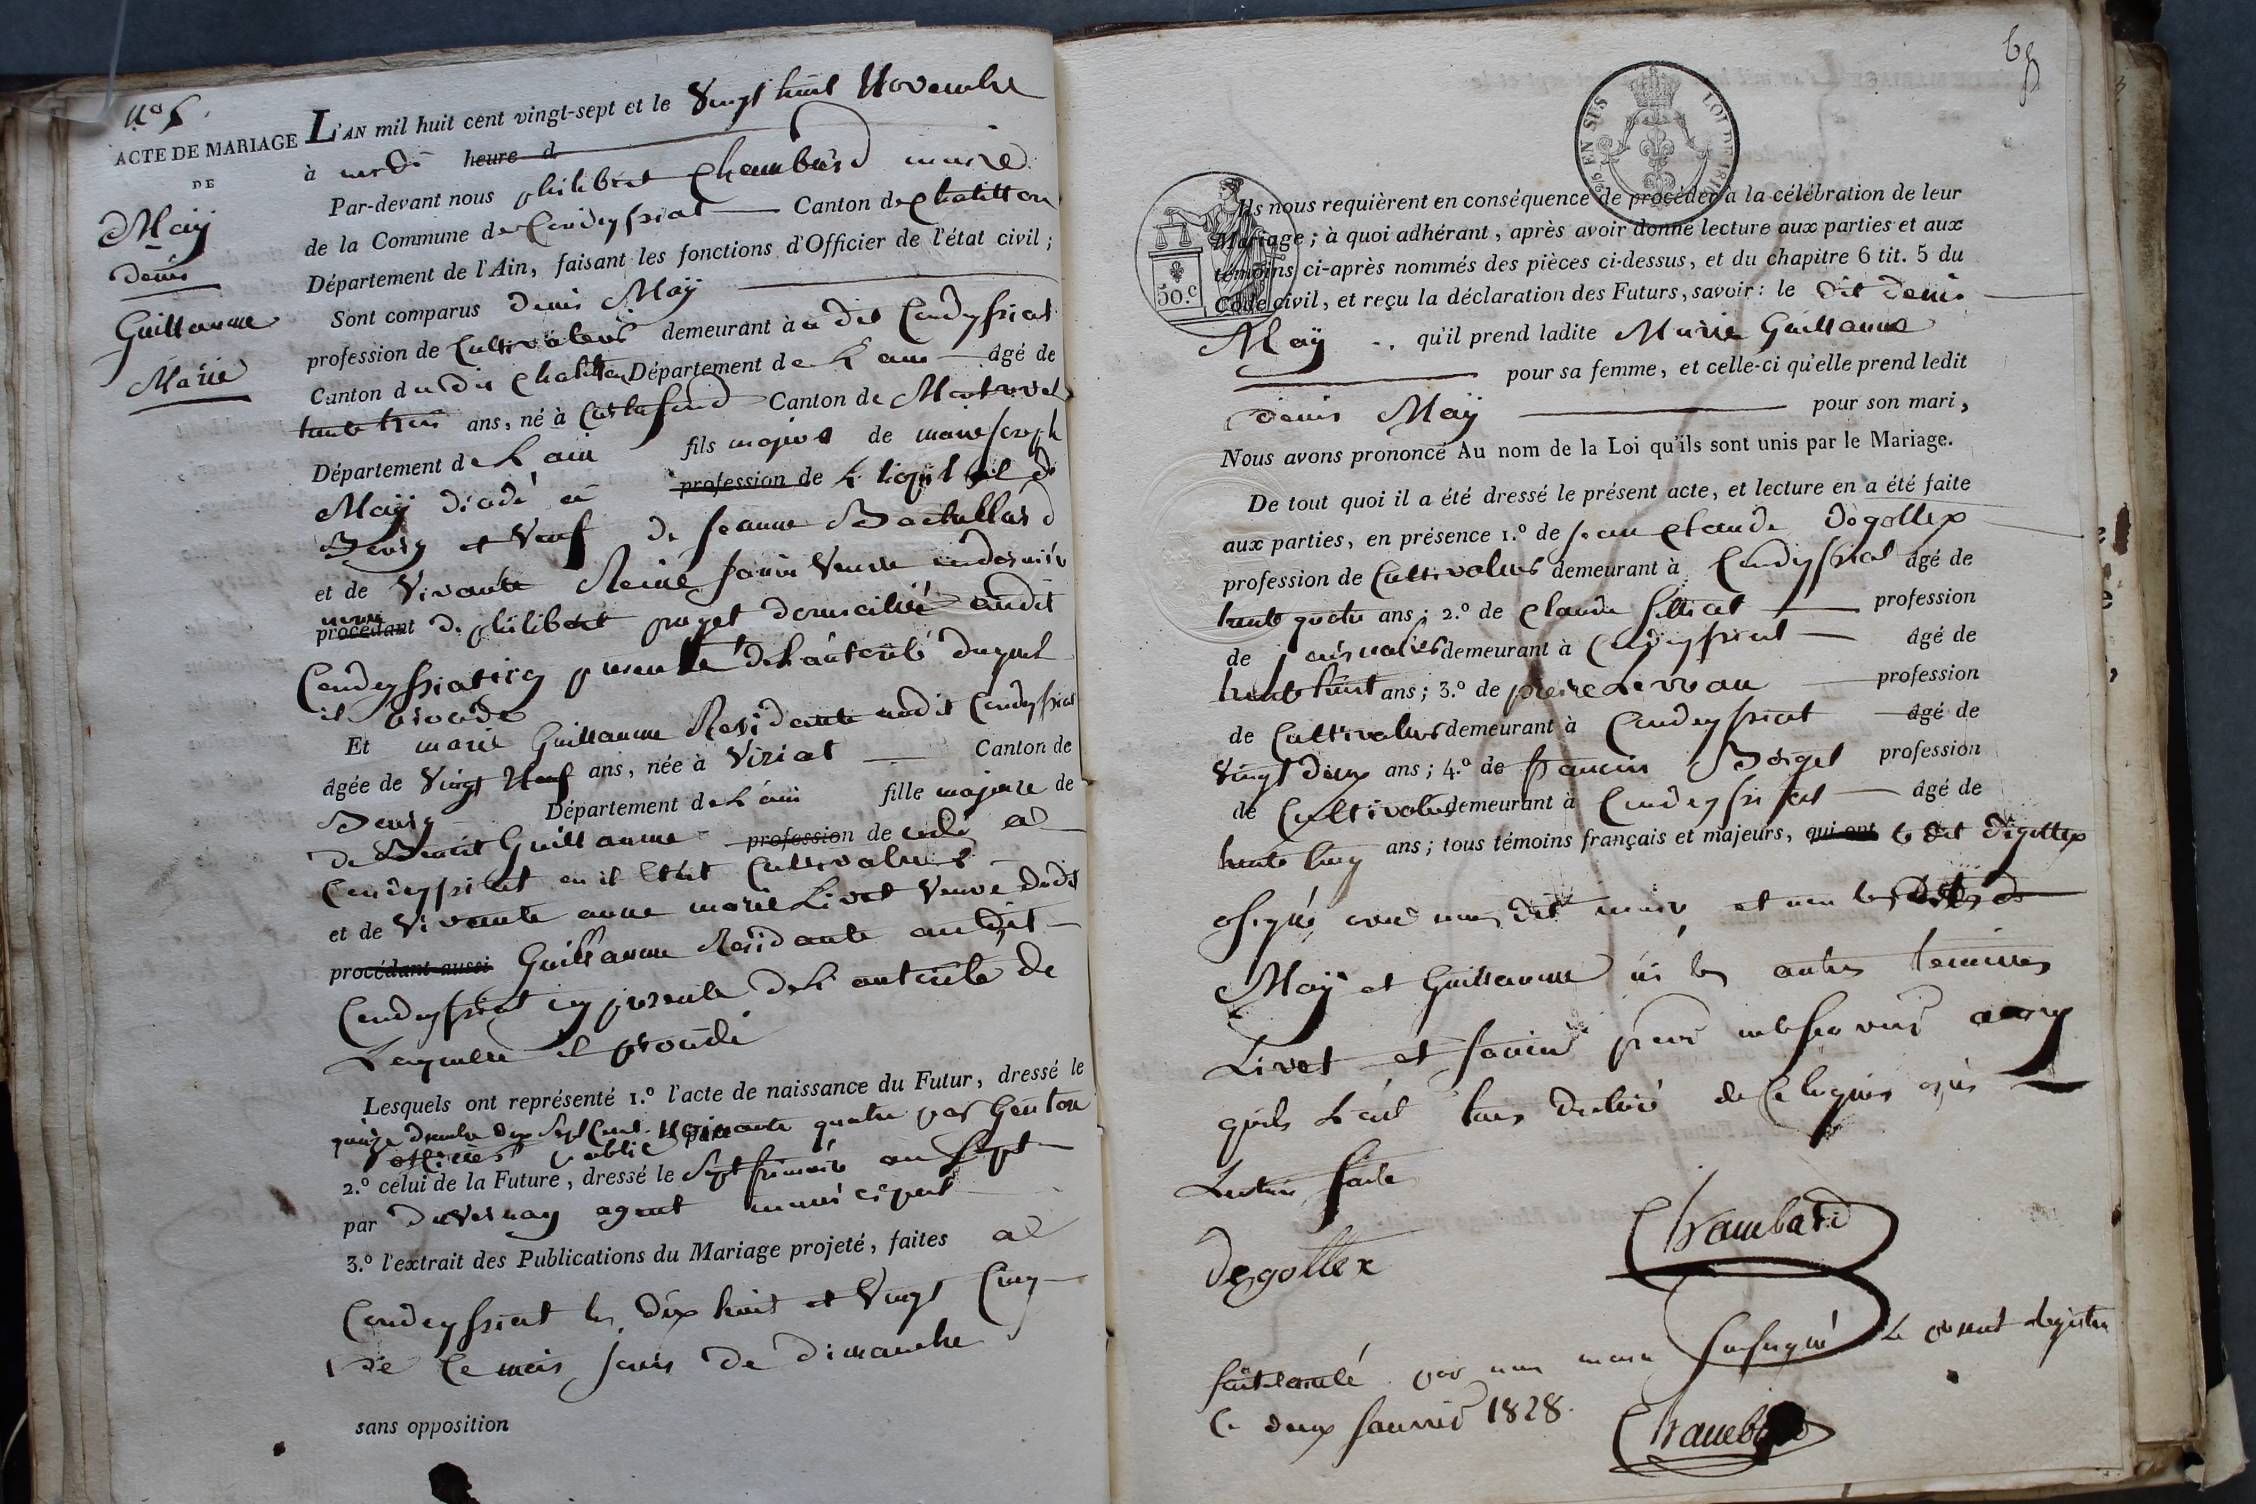 N° 5.
ACTE DE MARIAGE
DE
Maÿ
denis
Guillaume
Marie
L'AN mil huit cent vingt-sept et le Vingt huit Novembre
à midi heure d
Par-devant nous philibert Chambard maire
de la Commune de Condeyssiat Canton de Chatillon
Département de l'Ain, faisant les fonctions d'Officier de l'état civil;
Sont comparus denis Maÿ
profession de Cultivateur demeurant à a dit Condeyssiat
Canton du dit Chatillon Département de L'ain âgé de
trente trois ans, né à Curtafond Canton de Montrevel
Département de L'ain fils majeur de marie joseph
Maÿ décédé a profession de
Bourg et Veuf de jeanne
et de Vivante Reine Veuve
procédant de philibert puget domiciliée audit
Condeyssiat icy presente de L'autorité duquel
il
Et marie Guillaume Residante audit Condeyssiat
âgée de Vingt Neuf ans, née à Viriat Canton de
Bourg Département de L'ain fille majeure de
de Benoit Guillaume profession de
Condeyssiat ou il était Cultivateur
et de Vivante anne marie Livet Veuve dudit
procédant aussi Guillaume Residante audit
Condeyssiat icy presente de L'autorité de
Laquelle il procède
Lesquels ont représenté 1.° l'acte de naissance du Futur, dressé le
quinze Sept Cent quatre par Genton
officier public
2.° celui de la Future, dressé le Sept frimaire an Sept
par duvernay agent municipal
3.° l'extrait des Publications du Mariage projeté, faites a
Condeyssiat les dix huit et Vingt Cinq
de Ce mois jours de dimanche
sans opposition
EN SUS
LOI DE 1816
50.c
Ils nous requièrent en conséquence de procéder à la célébration de leur
Mariage; à quoi adhérant, après avoir donné lecture aux parties et aux
témoins ci-après nommés des pièces ci-dessus, et du chapitre 6 tit. 5 du
Code civil, et reçu la déclaration des Futurs, savoir: le dit denis
Maÿ qu'il prend ladite Marie Guillaume
pour sa femme, et celle-ci qu'elle prend ledit
denis Maÿ pour son mari,
Nous avons prononcé Au nom de la Loi qu'ils sont unis par le Mariage.
De tout quoi il a été dressé le présent acte, et lecture en a été faite
aux parties, en présence 1.° de jean Claude degottex
profession de Cultivateur demeurant à Condeyssiat âgé de
trente quatre ans; 2.° de Claude profession
de journalier demeurant à Condeyssiat âgé de
trente huit ans; 3.° de pierre profession
de Cultivateur demeurant à Condeyssiat âgé de
Vingt deux ans; 4.° de francois Berget profession
de Cultivateur demeurant à Condeyssiat âgé de
trente Cinq ans; tous témoins français et majeurs, qui ont le dit degottex
a signé avec nous dit maire et non les
Maÿ et Guillaume ni les autres temoins
Livet et pour
qu'ils L'ont tous déclaré de Ce requis après
Lecture faite
degottex
Chambard
par nous maire soussigné Le present Registre
Ce deux janvier 1828.
Chambard